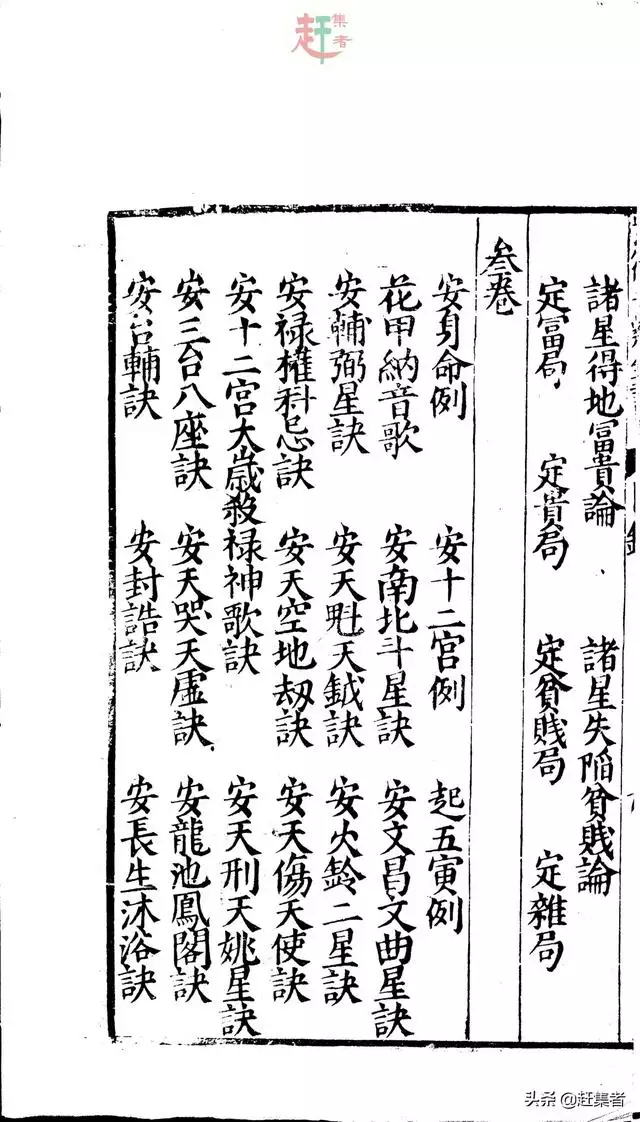 赶集者
諸星得地富貴論 諸星失陷貧賤論
定富局 定貴局 定貧賤局 定雜局
叁卷
安身命例 安十二宮例 起五寅例
花甲納音歌 安南北斗星訣 安文昌文曲星訣
安輔弼星訣 安天魁天鉞訣 安火鈴二星訣
安禄權科忌訣 安天空地刼訣 安天傷天使訣
安十二宮太歲殺禄神歌訣 安天刑天姚星訣
安三台八座訣 安天哭天虛訣 安龍池鳳閣訣
安台輔訣 安封誥訣 安長生沐浴訣
头条 @赶集者